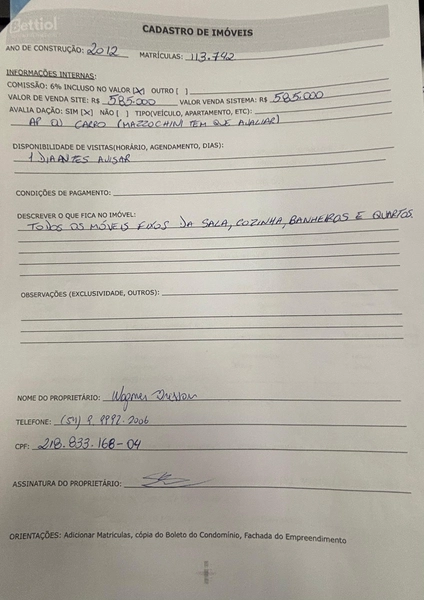 Bettiol
CADASTRO DE IMÓVEIS
ANO DE CONSTRUÇÃO: 2012 MATRÍCULAS: 113.742
INFORMAÇÕES INTERNAS:
COMISSÃO: 6% INCLUSO NO VALOR [X] OUTRO [ ]
VALOR DE VENDA SITE: R$ 585.000 VALOR VENDA SISTEMA: R$ 585.000
AVALIA DAÇÃO: SIM [X] NÃO [ ] TIPO(VEÍCULO, APARTAMENTO, ETC):
AP OU CARRO (MAZZOCHINI TEM QUE AVALIAR)
DISPONIBILIDADE DE VISITAS(HORÁRIO, AGENDAMENTO, DIAS):
1 DIA ANTES AVISAR
CONDIÇÕES DE PAGAMENTO:
DESCREVER O QUE FICA NO IMÓVEL:
TODOS OS MÓVEIS FIXOS DA SALA, COZINHA, BANHEIROS E QUARTOS.
OBSERVAÇÕES (EXCLUSIVIDADE, OUTROS):
NOME DO PROPRIETÁRIO: Wagner
TELEFONE: (54) 9.9992.2006
CPF: 218.833.168-04
ASSINATURA DO PROPRIETÁRIO:
ORIENTAÇÕES: Adicionar Matriculas, cópia do Boleto do Condomínio, Fachada do Empreendimento